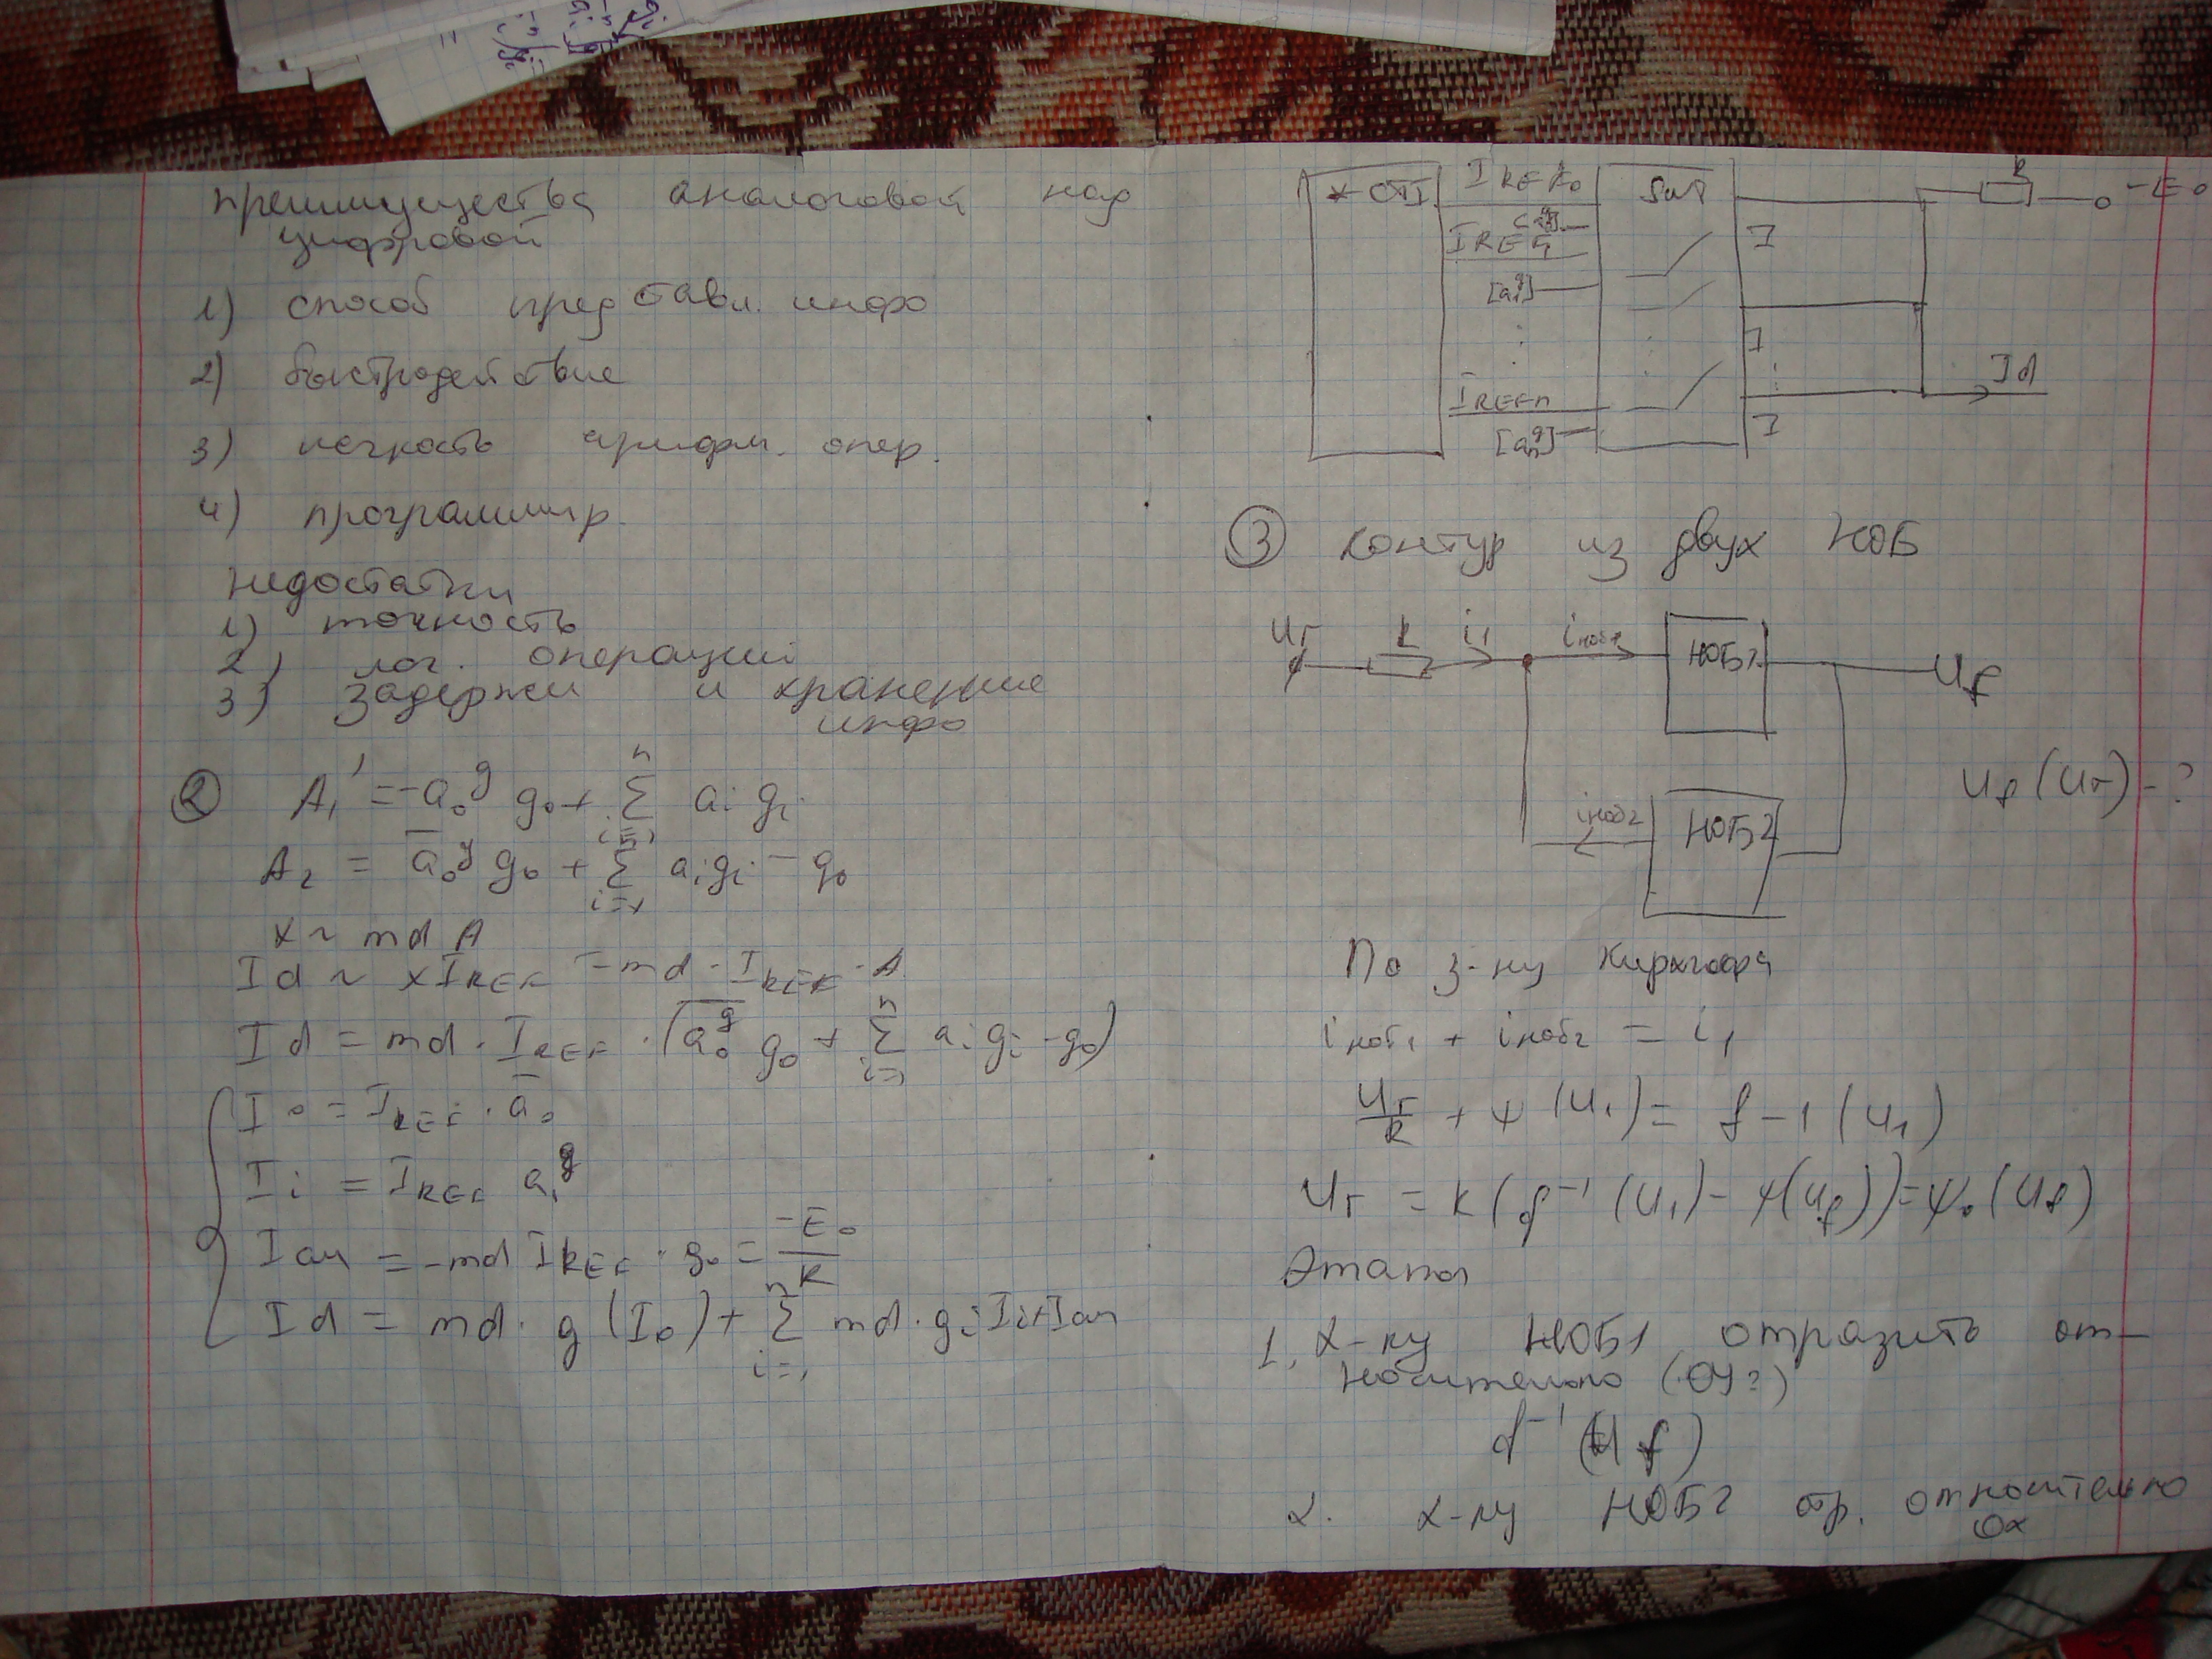 преимущества аналоговой над
цифровой
1) способ представл. инфо
2) быстродействие
3) легкость арифм. опер.
4) программир.
недостатки
1) точность
2) лог. операции
3) задержки и хранение
инфо
② A₁' = -a₀^g g₀ + Σ_{i=1}^{n} aᵢ gᵢ
A₂ = \overline{a}₀^g g₀ + Σ_{i=1} aᵢgᵢ - g₀
x ~ md A
Id ~ xI_REF = md · I_REF · A
Id = md · I_REF · (\overline{a₀^g} g₀ + Σ_{i=1}^{n} aᵢ gᵢ - g₀)
I₀ = I_REF · \overline{a}₀
Iᵢ = I_REF aᵢ^g
Iсм = -md I_REF · g₀ = -E₀/R
Id = md · g(I₀) + Σ_{i=1}^{n} md · gᵢ Iᵢ + Iсм
I REF₀ R -E₀
СТI SWT
I REF₁ I
[a₁^g]
I Id
I REFn
[aₙ^g] I
③ контур из двух НОБ
Uг R i₁ iноб1 НОБ1 Uf
Uf (Uг) - ?
iноб2 НОБ2
По з-ну Кирхгофа
iноб1 + iноб2 = i₁
Uг/R + ψ (U₁) = f-1 (U₁)
Uг = R (f⁻¹ (U₁) - ψ(Uf)) = ψ₀ (Uf)
Этапы
1. х-ку НОБ1 отразить от-
носительно (ОУ?)
f⁻¹ (Uf)
2. х-ку НОБ2 отр. относительно
Ох